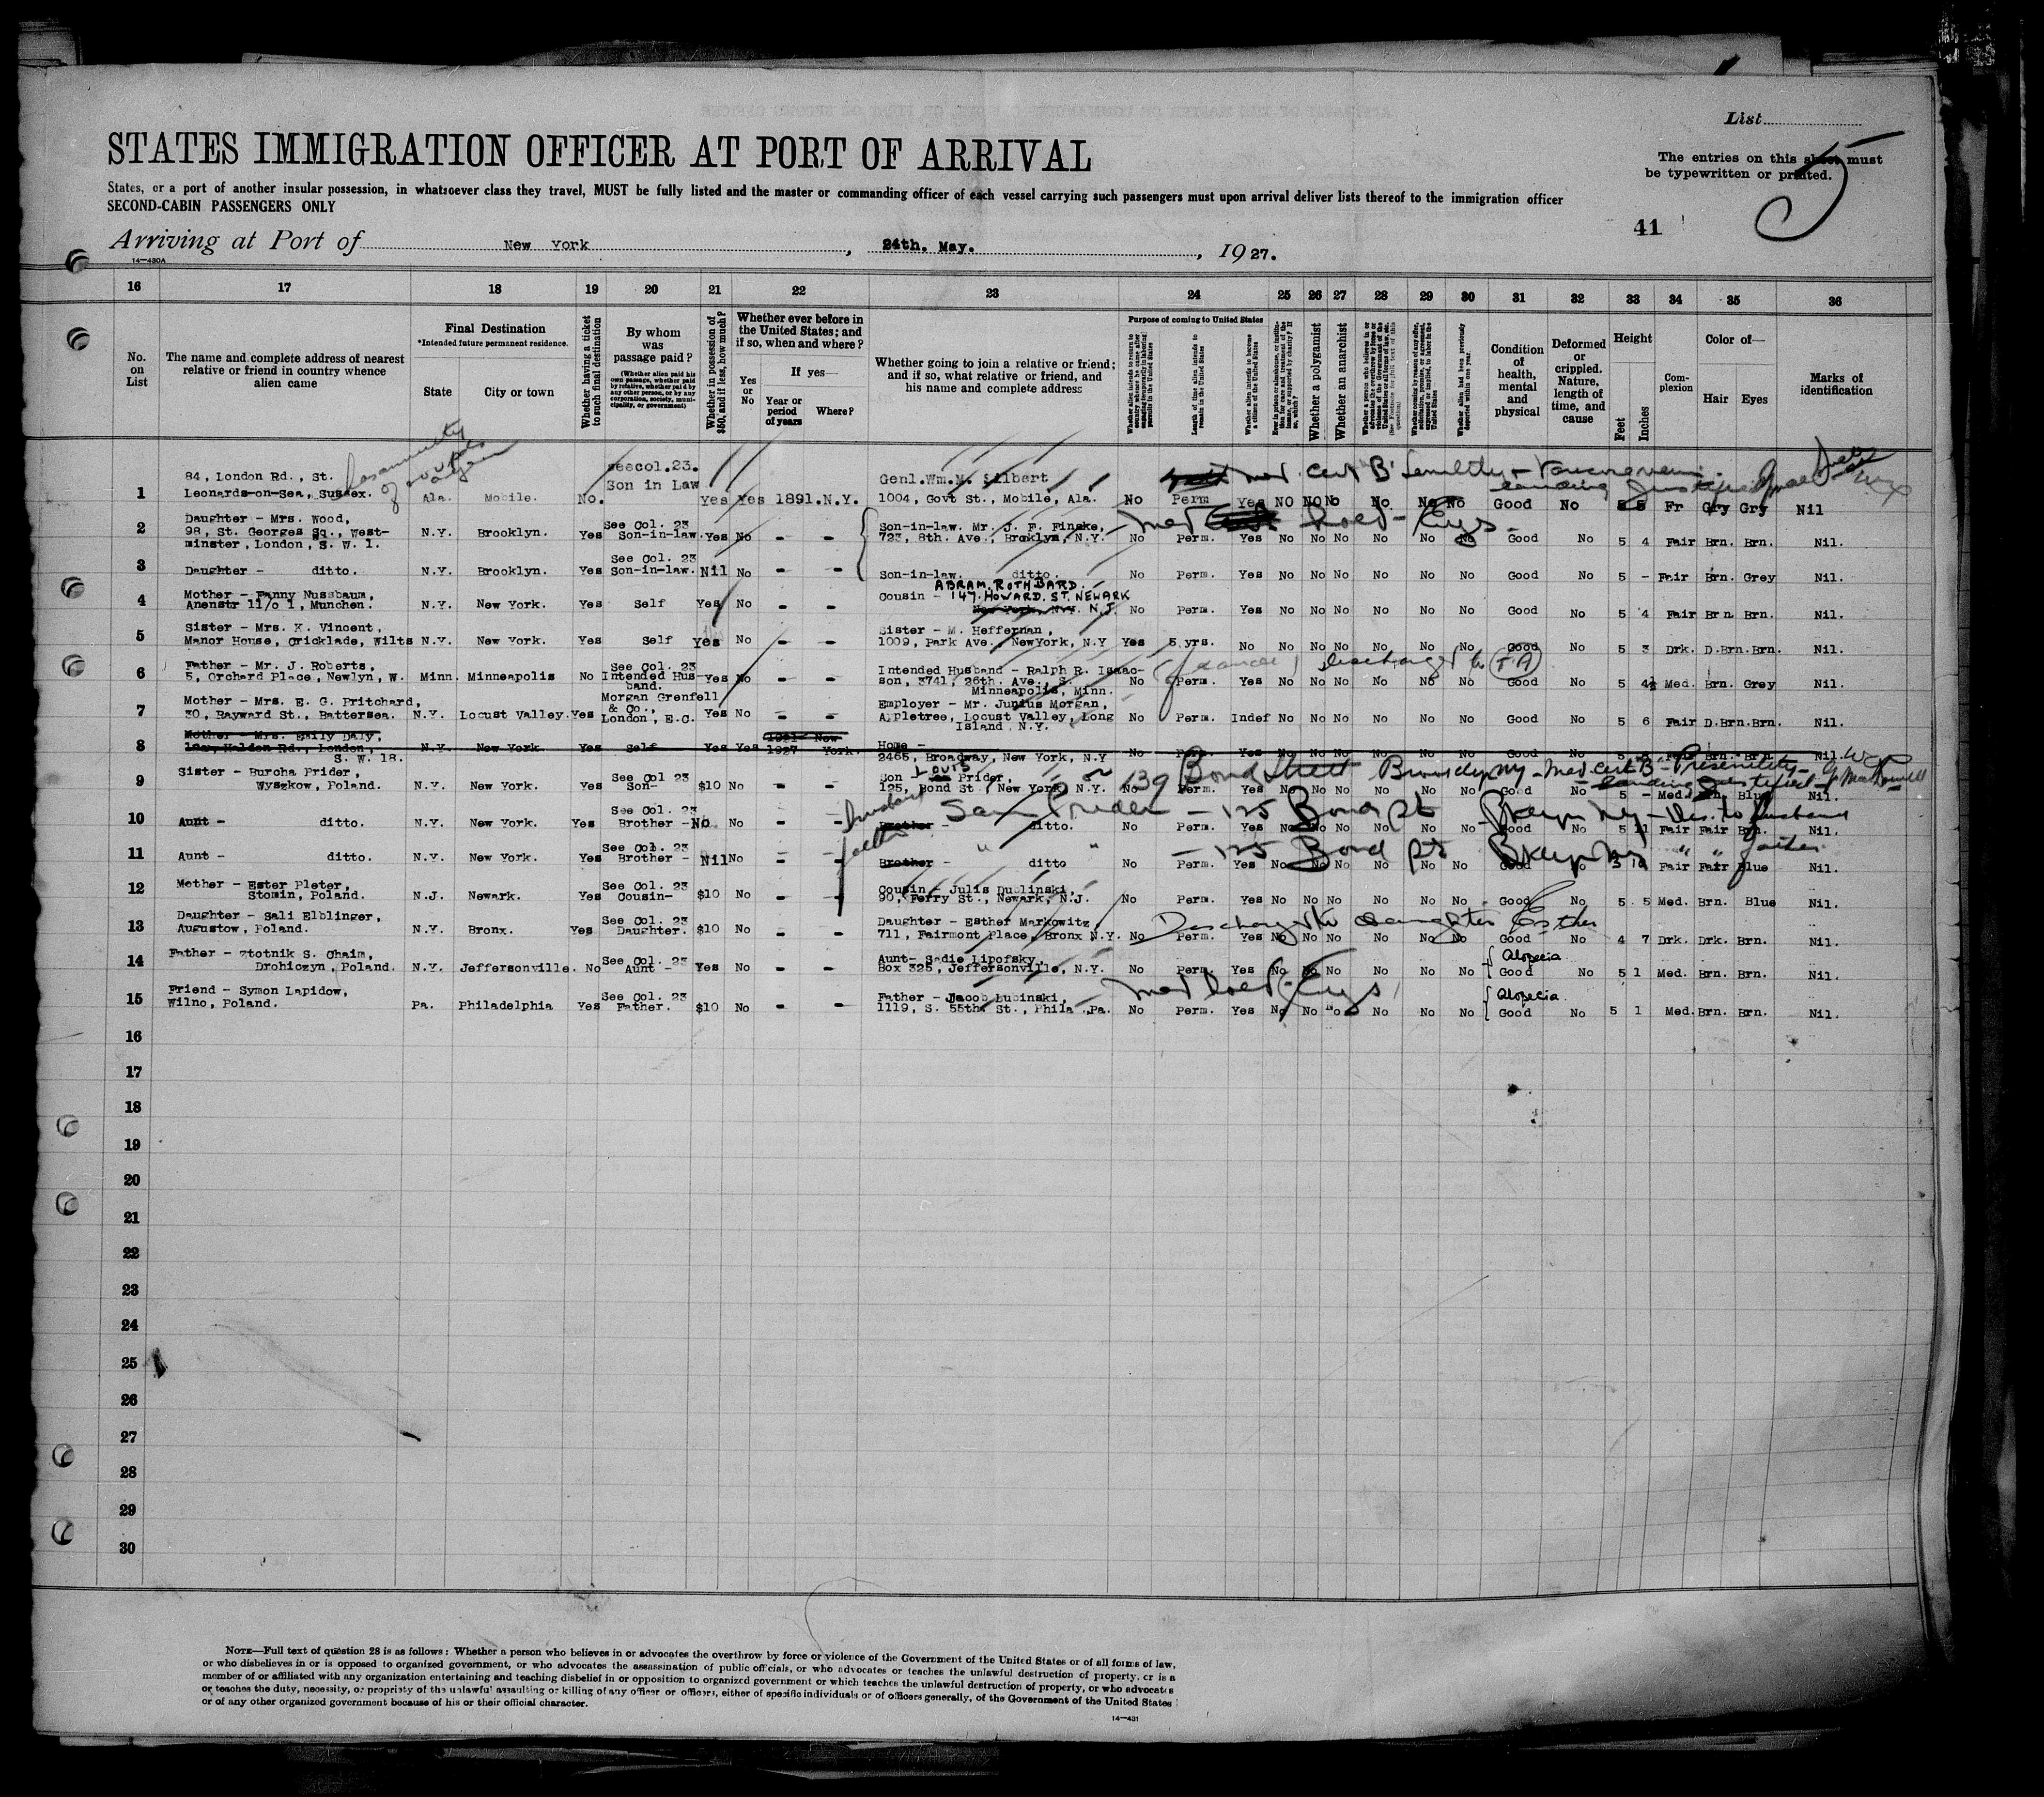 List
STATES IMMIGRATION OFFICER AT PORT OF ARRIVAL
The entries on this sheet must
be typewritten or printed.
5
States, or a port of another insular possession, in whatsoever class they travel, MUST be fully listed and the master or commanding officer of each vessel carrying such passengers must upon arrival deliver lists thereof to the immigration officer
SECOND-CABIN PASSENGERS ONLY
41
Arriving at Port of New York, 24th. May., 1927.
14—430A
16 17 18 19 20 21 22 23 24 25 26 27 28 29 30 31 32 33 34 35 36
No. on List
The name and complete address of nearest relative or friend in country whence alien came
Final Destination
*Intended future permanent residence.
State
City or town
Whether having a ticket to such final destination
By whom was passage paid?
(Whether alien paid his own passage, whether paid by relative, whether paid by any other person, or by any corporation, society, municipality, or government)
Whether in possession of $50, and if less, how much?
Whether ever before in the United States; and if so, when and where?
Yes or No
If yes—
Year or period of years
Where?
Whether going to join a relative or friend; and if so, what relative or friend, and his name and complete address
Purpose of coming to United States
Length of time alien intends to remain in the United States
Whether alien intends to become a citizen of the United States
Whether a polygamist
Whether an anarchist
Condition of health, mental and physical
Deformed or crippled. Nature, length of time, and cause
Height
Feet
Inches
Complexion
Color of—
Hair
Eyes
Marks of identification
84, London Rd., St. seecol.23. Genl.Wm.M. med cert B Senility
1 Leonards-on-Sea, Sussex. Ala. Mobile. No. Son in Law Yes Yes 1891.N.Y. 1004, Govt St., Mobile, Ala. No Perm Yes NO NO No No No No Good No 5 5 Fr Gry Gry Nil
Daughter - Mrs. Wood,
2 98, St. Georges Sq., West- N.Y. Brooklyn. Yes See Col. 23 Son-in-law. Yes No - - Son-in-law. Mr. J. F. Finske, med hold - Eyes
minster, London, S. W. 1. 723, 8th. Ave., Brooklyn, N.Y. No Perm. Yes No No No No No No Good No 5 4 Fair Brn. Brn. Nil.
3 Daughter - ditto. N.Y. Brooklyn. Yes See Col. 23 Son-in-law. Nil No - - Son-in-law. ditto. No Perm. Yes No No No No No No Good No 5 - Fair Brn. Grey Nil.
ABRAM ROTHBARD
4 Mother - Fanny Nussbaum, Anenstr 11/o 1, Munchen. N.Y. New York. Yes Self Yes No - - Cousin - 147 HOWARD ST. NEWARK
New York, N.Y. N.J. No Perm. Yes No No No No No No Good No 5 4 Fair Brn. Brn. Nil.
5 Sister - Mrs. K. Vincent, Manor House, Cricklade, Wilts N.Y. New York. Yes Self Yes No - - Sister - M. Heffernan,
1009, Park Ave., NewYork, N.Y Yes 5 yrs. No No No No No No No Good No 5 3 Drk. D.Brn. Brn. Nil.
6 Father - Mr. J. Roberts, 5, Orchard Place, Newlyn, W. Minn. Minneapolis No See Col. 23 Intended Husband. Yes No - - Intended Husband - Ralph R. Isaac-
son, 3741, 26th. Ave., S. Minneapolis, Minn. No Perm. Yes No No No No No No Good No 5 4½ Med. Brn. Grey Nil.
7 Mother - Mrs. E. G. Pritchard, 30, Rayward St., Battersea. N.Y. Locust Valley. Yes Morgan Grenfell & Co., London, E.C. Yes No - - Employer - Mr. Junius Morgan,
Appletree, Locust Valley, Long Island N.Y. No Perm. Indef No No No No No No Good No 5 6 Fair D.Brn. Brn. Nil.
8 Mother - Mrs. Emily Daly, Haldon Rd., London, S. W. 18. N.Y. New York Yes Self Yes Yes 1921 1927 New York. Home -
2465, Broadway, New York, N.Y No Perm. Yes No No No No No No Good No Brn. Brn. Nil.
9 Sister - Burcha Prider, Wyszkow, Poland. N.Y. New York. Yes See Col 23 Son- $10 No - - Son - LOUIS Prider, or 139 Bond Street Brooklyn NY - Med. Cert B - landing justified
125, Bond St., New York, N.Y. No Perm. Yes No No No No No No Good No 5 - Med. Blue Nil.
10 Aunt - ditto. N.Y. New York. Yes See Col. 23 Brother - No No - - husband Brother - ditto. Sam Prider - 125 Bond St Bklyn NY - to husband
No Perm. Yes No No No No No No Good No 5 11 Fair Fair Brn. Nil.
11 Aunt - ditto. N.Y. New York. Yes See Col. 23 Brother - Nil No - - father Brother - ditto " " - 125 Bond St Bklyn NY " " father
No Perm. Yes No No No No No No Good No 5 10 Fair Fair Blue Nil.
12 Mother - Ester Pleter, Stomin, Poland. N.J. Newark. Yes See Col. 23 Cousin- $10 No - - Cousin - Julis Dublinski,
90, Ferry St., Newark, N.J. No Perm. Yes No No No No No No Good No 5 5 Med. Brn. Blue Nil.
13 Daughter - Sali Elblinger, Augustow, Poland. N.Y. Bronx. Yes See Col. 23 Daughter. $10 No - - Daughter - Esther Markowitz Discharged to daughter Esther
711, Fairmont Place, Bronx N.Y. No Perm. Yes No No No No No No Good No 4 7 Drk. Drk. Brn. Nil.
14 Father - Ztotnik S. Chaim, Drohiczyn, Poland. N.Y. Jeffersonville. No See Col. 23 Aunt - Yes No - - Aunt- Sadie Lipofsky, Alopecia
Box 325, Jeffersonville, N.Y. No Perm. Yes No No No No No No Good No 5 1 Med. Brn. Brn. Nil.
15 Friend - Symon Lapidow, Wilno, Poland. Pa. Philadelphia Yes See Col. 23 Father. $10 No - - Father - Jacob Lubinski, med hold - Eyes Alopecia
1119, S. 55th. St., Phila., Pa. No Perm. Yes No No No No No No Good No 5 1 Med. Brn. Brn. Nil.
16
17
18
19
20
21
22
23
24
25
26
27
28
29
30
NOTE—Full text of question 28 is as follows: Whether a person who believes in or advocates the overthrow by force or violence of the Government of the United States or of all forms of law,
or who disbelieves in or is opposed to organized government, or who advocates the assassination of public officials, or who advocates or teaches the unlawful destruction of property, or is a
member of or affiliated with any organization entertaining and teaching disbelief in or opposition to organized government or which teaches the unlawful destruction of property, or who advocates
or teaches the duty, necessity, or propriety of the unlawful assaulting or killing of any officer or officers, either of specific individuals or of officers generally, of the Government of the United States
or of any other organized government because of his or their official character.
14—431